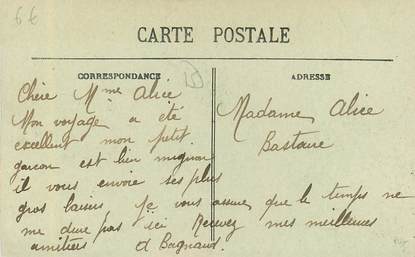 6€
CARTE POSTALE
CORRESPONDANCE
ADRESSE
Chère Mme Alice
Mon voyage a été
excellent mon petit
garçon est bien mignon
il vous envoie ses plus
gros baisers je vous assure que le temps ne
me dure pas ici Recevez mes meilleures
amitiées
Madame Alice